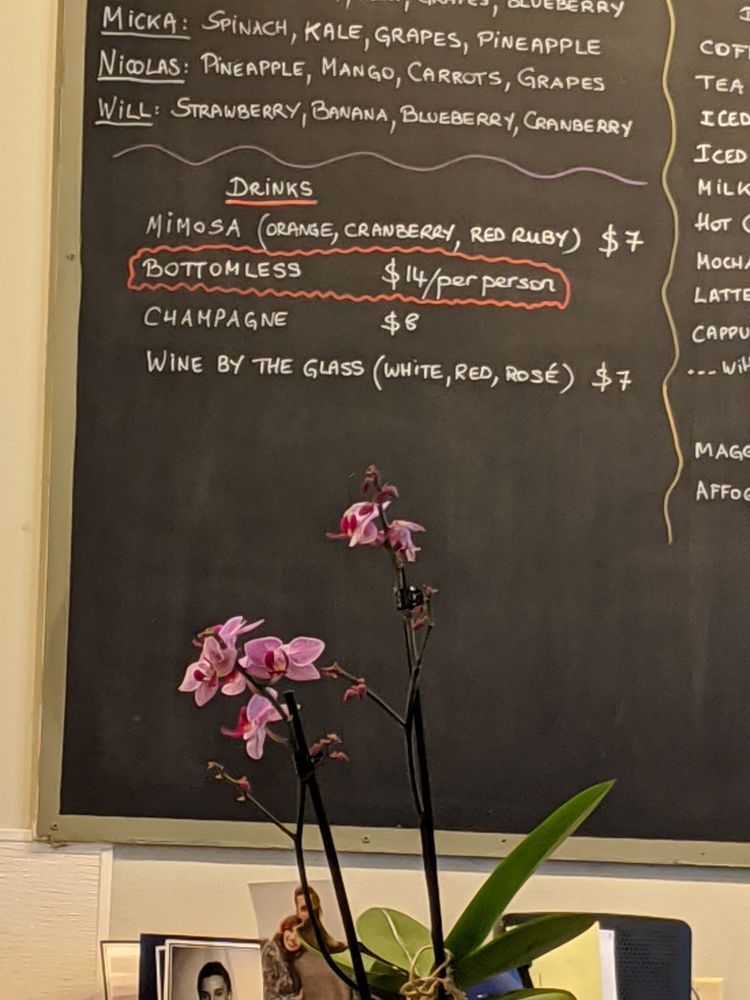 BLUEBERRY
MICKA: SPINACH, KALE, GRAPES, PINEAPPLE
NICOLAS: PINEAPPLE, MANGO, CARROTS, GRAPES
WILL: STRAWBERRY, BANANA, BLUEBERRY, CRANBERRY
DRINKS
MIMOSA (ORANGE, CRANBERRY, RED RUBY) $7
BOTTOMLESS $14/per person
CHAMPAGNE $8
WINE BY THE GLASS (WHITE, RED, ROSÉ) $7
COF
TEA
ICED
ICED
MILK
HOT
MOCHA
LATTE
CAPPU
... Wi
MAGG
AFFOG